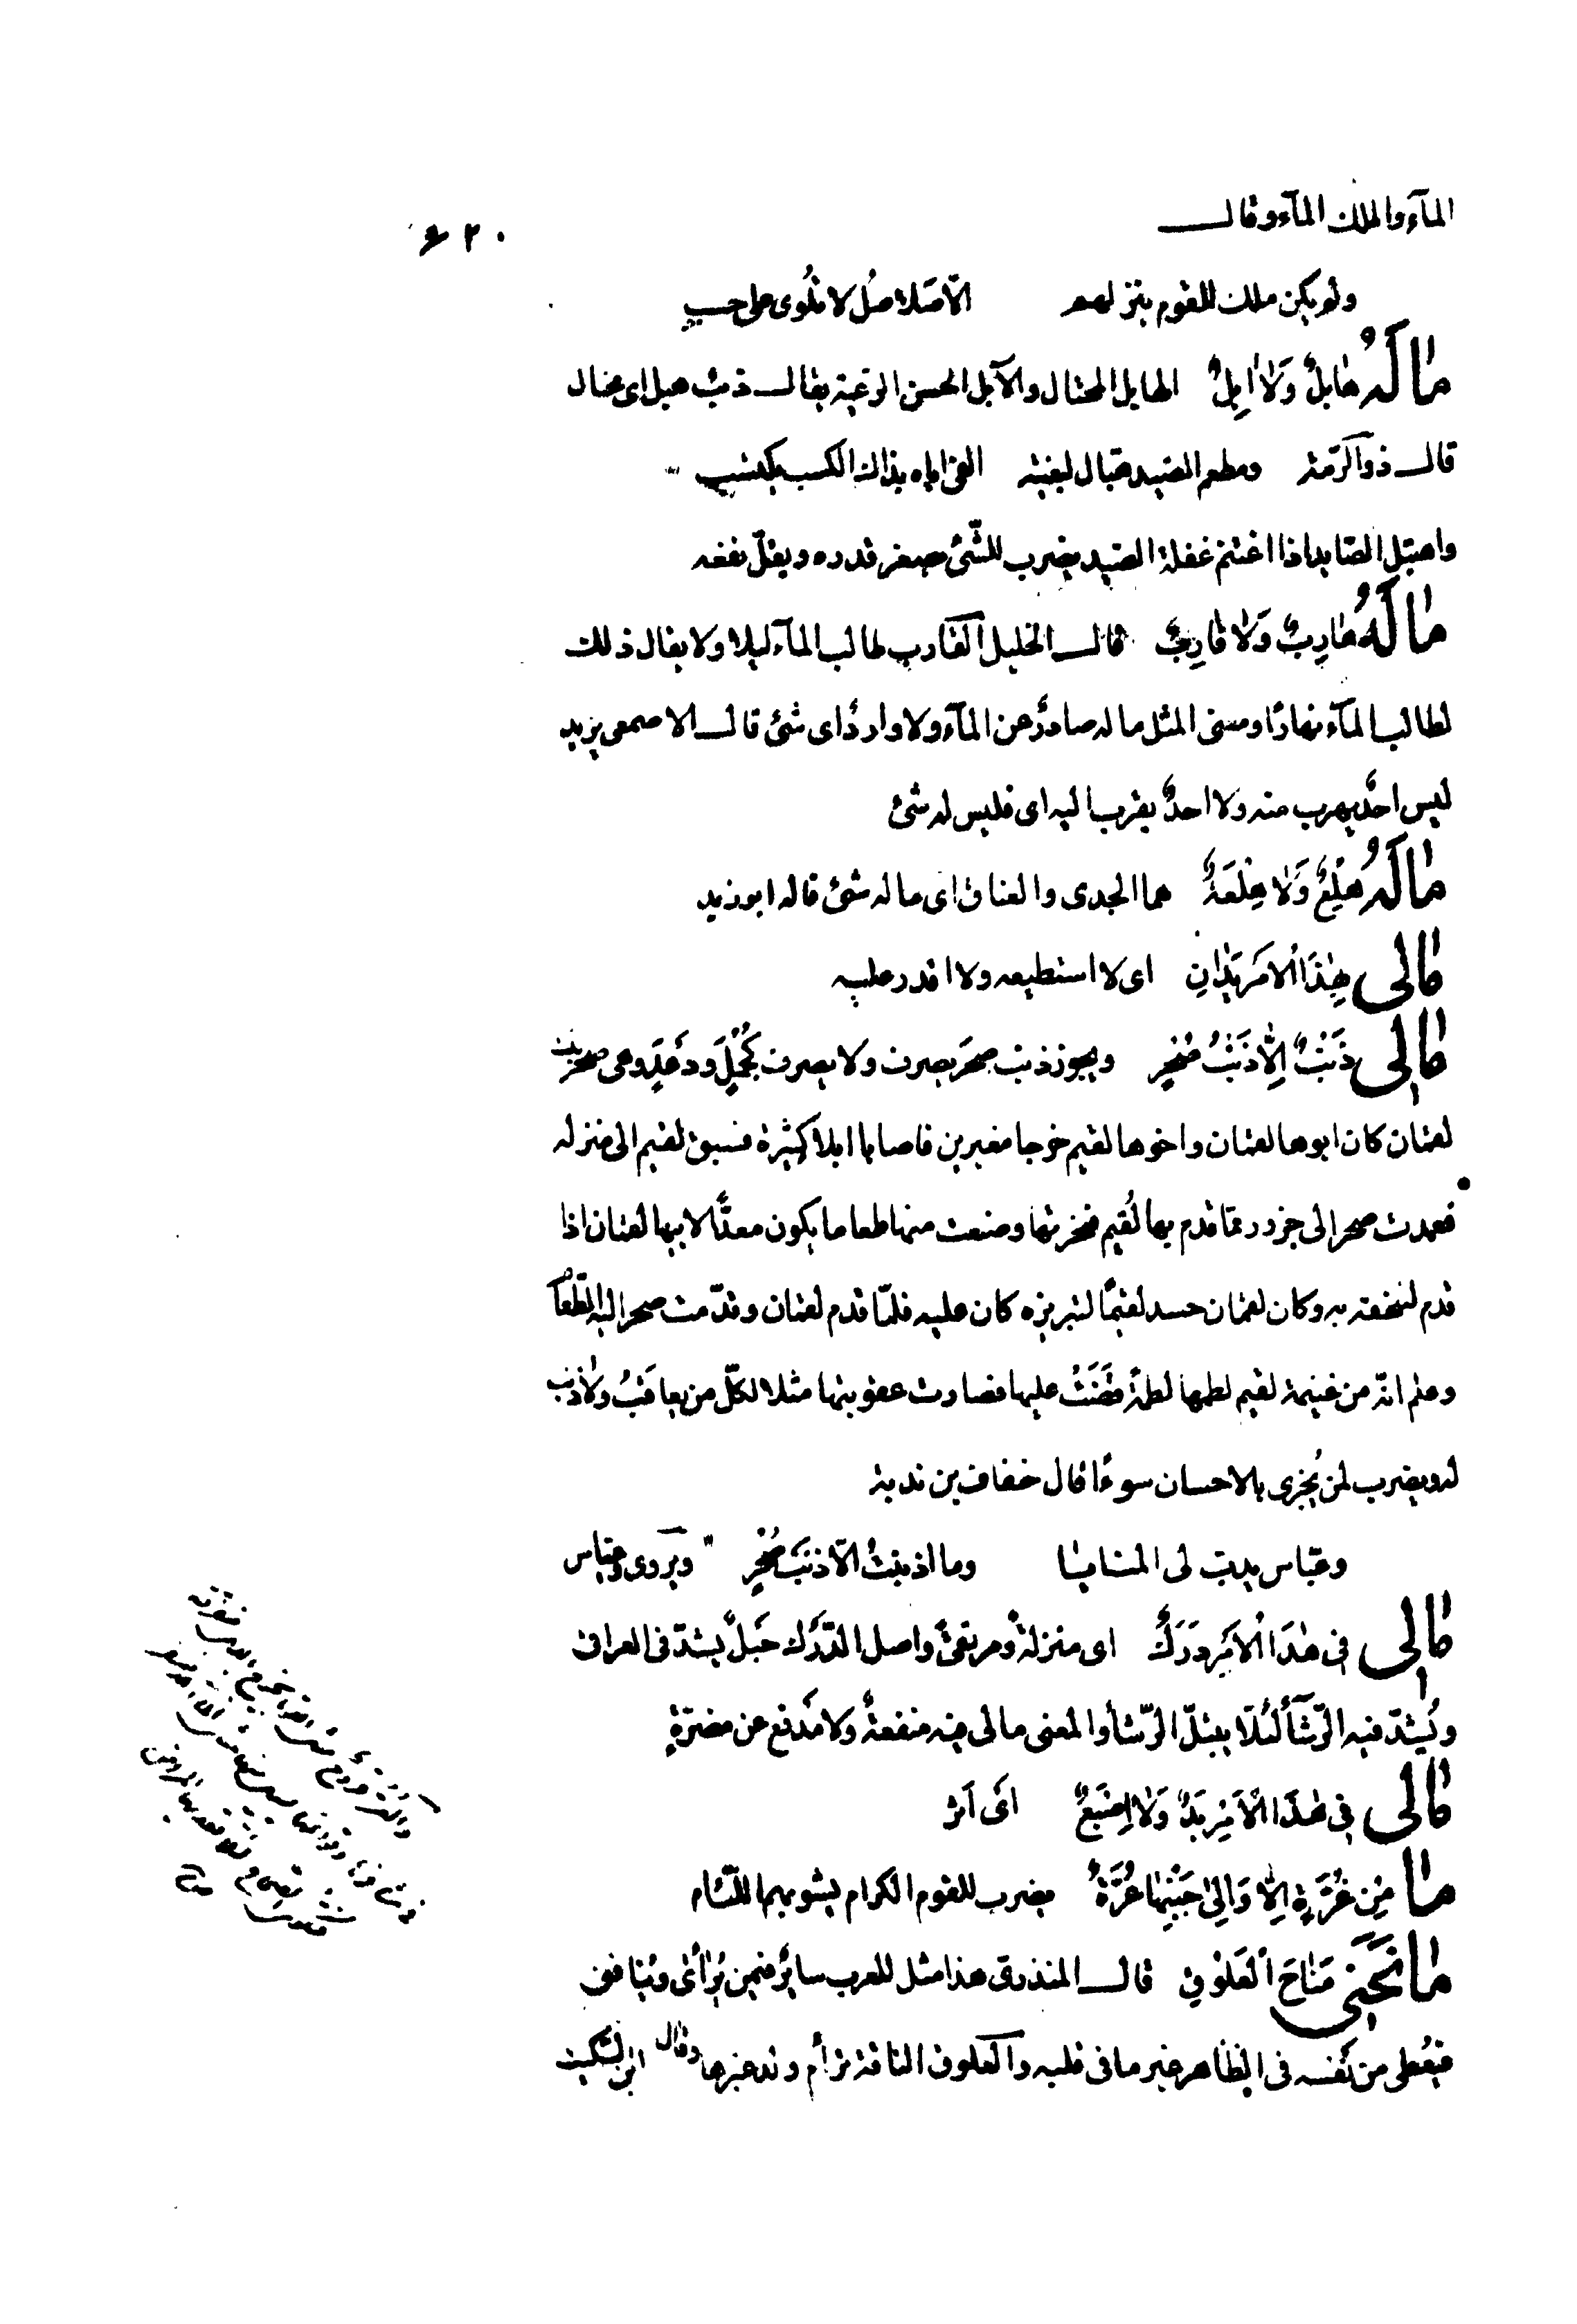 المآء والملك المآء وقال
٦٢٠
ولم يكن ملك للقوم ينزلهم الّا صَلاصُل لا تلْوى على حسب
مَالَهُ هَابِلٌ وَلَا اٰبِلٌ الهابل المحتال والآبل الحسن الرعية يقال ذئب هبل اى محتال
قال ذو الرّمة ومطعم الصيد هبّال لبغيته الفى اباه بذاك الكسب يكتسب
واهتبل الصايد اذا اغتنم غفلة الصيد يضرب للشّئ يصغر قدره ويقلّ نفعه
مَالَهُ هَارِبٌ وَلَا قَارِبٌ قال الخليل القارب طالب المآء ليلا ولا يقال ذلك
لطالب المآء نهارًا ومعنى المثل ما له صادرٌ عن المآء ولا واردٌ اى شئ قال الاصمعى يريد
ليس احدٌ يهرب منه ولا احدٌ يقرب اليه اى فليس له شئ
مَالَهُ هِلَّعٌ وَلَا هِلَّعَةٌ هما الجدى والعناق اى ما له شئ قاله ابو زيد
مَالِى بِهٰذَا الْاَمْرِ يَدَانِ اى لا استطيعه ولا اقدر عليه
مَالِى ذَنْبٌ اِلَّا ذَنْبُ صُحْرٍ ويجوز ذنب صحرَ يصرف ولا يصرف كجُمْلٍ ودَعْدٍ وهى صحر بنت
لقمان كان ابوها لقمان واخوها لقيم خرجا مغيرين فاصابا ابلا كثيرة فسبق لقيم الى منزله
فعمدت صحر الى جزور ممّا قدم بها لُقيم فنحرتها وصنعت منها طعاما يكون معدًّا لابيها لقمان اذا
قدم لتتحفه به وكان لقمان حسد لقيمًا لتبريزه كان عليه فلمّا قدم لقمان وقدّمت صحر اليه الطّعام
وعلم انّه من غنيمة لقيم لطمها لطمةً فقَضَتْ عليها فصارت عقوبتها مثلا لكلّ من يعاقبُ ولا ذنب
له ويضرب لمن يُجزى بالاحسان سوءًا قال خفاف بن ندبة
وعبّاس يدبّ لى المنايا وما اذنبتُ الّا ذنبَ صُحْرٍ ويروى وعبّاس
مَالِى فِى هٰذَا الْاَمْرِ دَرَكٌ اى منزلةٌ ومرتقىً واصل الدّرَك حَبلٌ يشدّ فى العراقى
ويُشدّ فيه الرّشآء لئلّا يبتلّ الرّشا والمعنى ما لى فيه منفعةٌ ولا مَدفع عن مضرّةٍ
مَالِى فِى هٰذَا الْاَمْرِ يَدٌ وَلَا اِصْبَعٌ اى اثر
مَا مِنْ غُرَّةٍ اِلَّا وَاِلٰى جَنْبِهَا عُرَّةٌ يضرب للقوم الكرام يشوبهم اللّئام
مَا نَحَنِى مَنَاحَ الْعَلُوقِ قال المنذرى هذا مثل للعرب سايرٌ فيمن يُرائى وينافق
فيعطى من نفسه فى الظاهر غير ما فى قلبه والعلوق الناقة ترأم ولد غيرها وقال ابن السّكيت